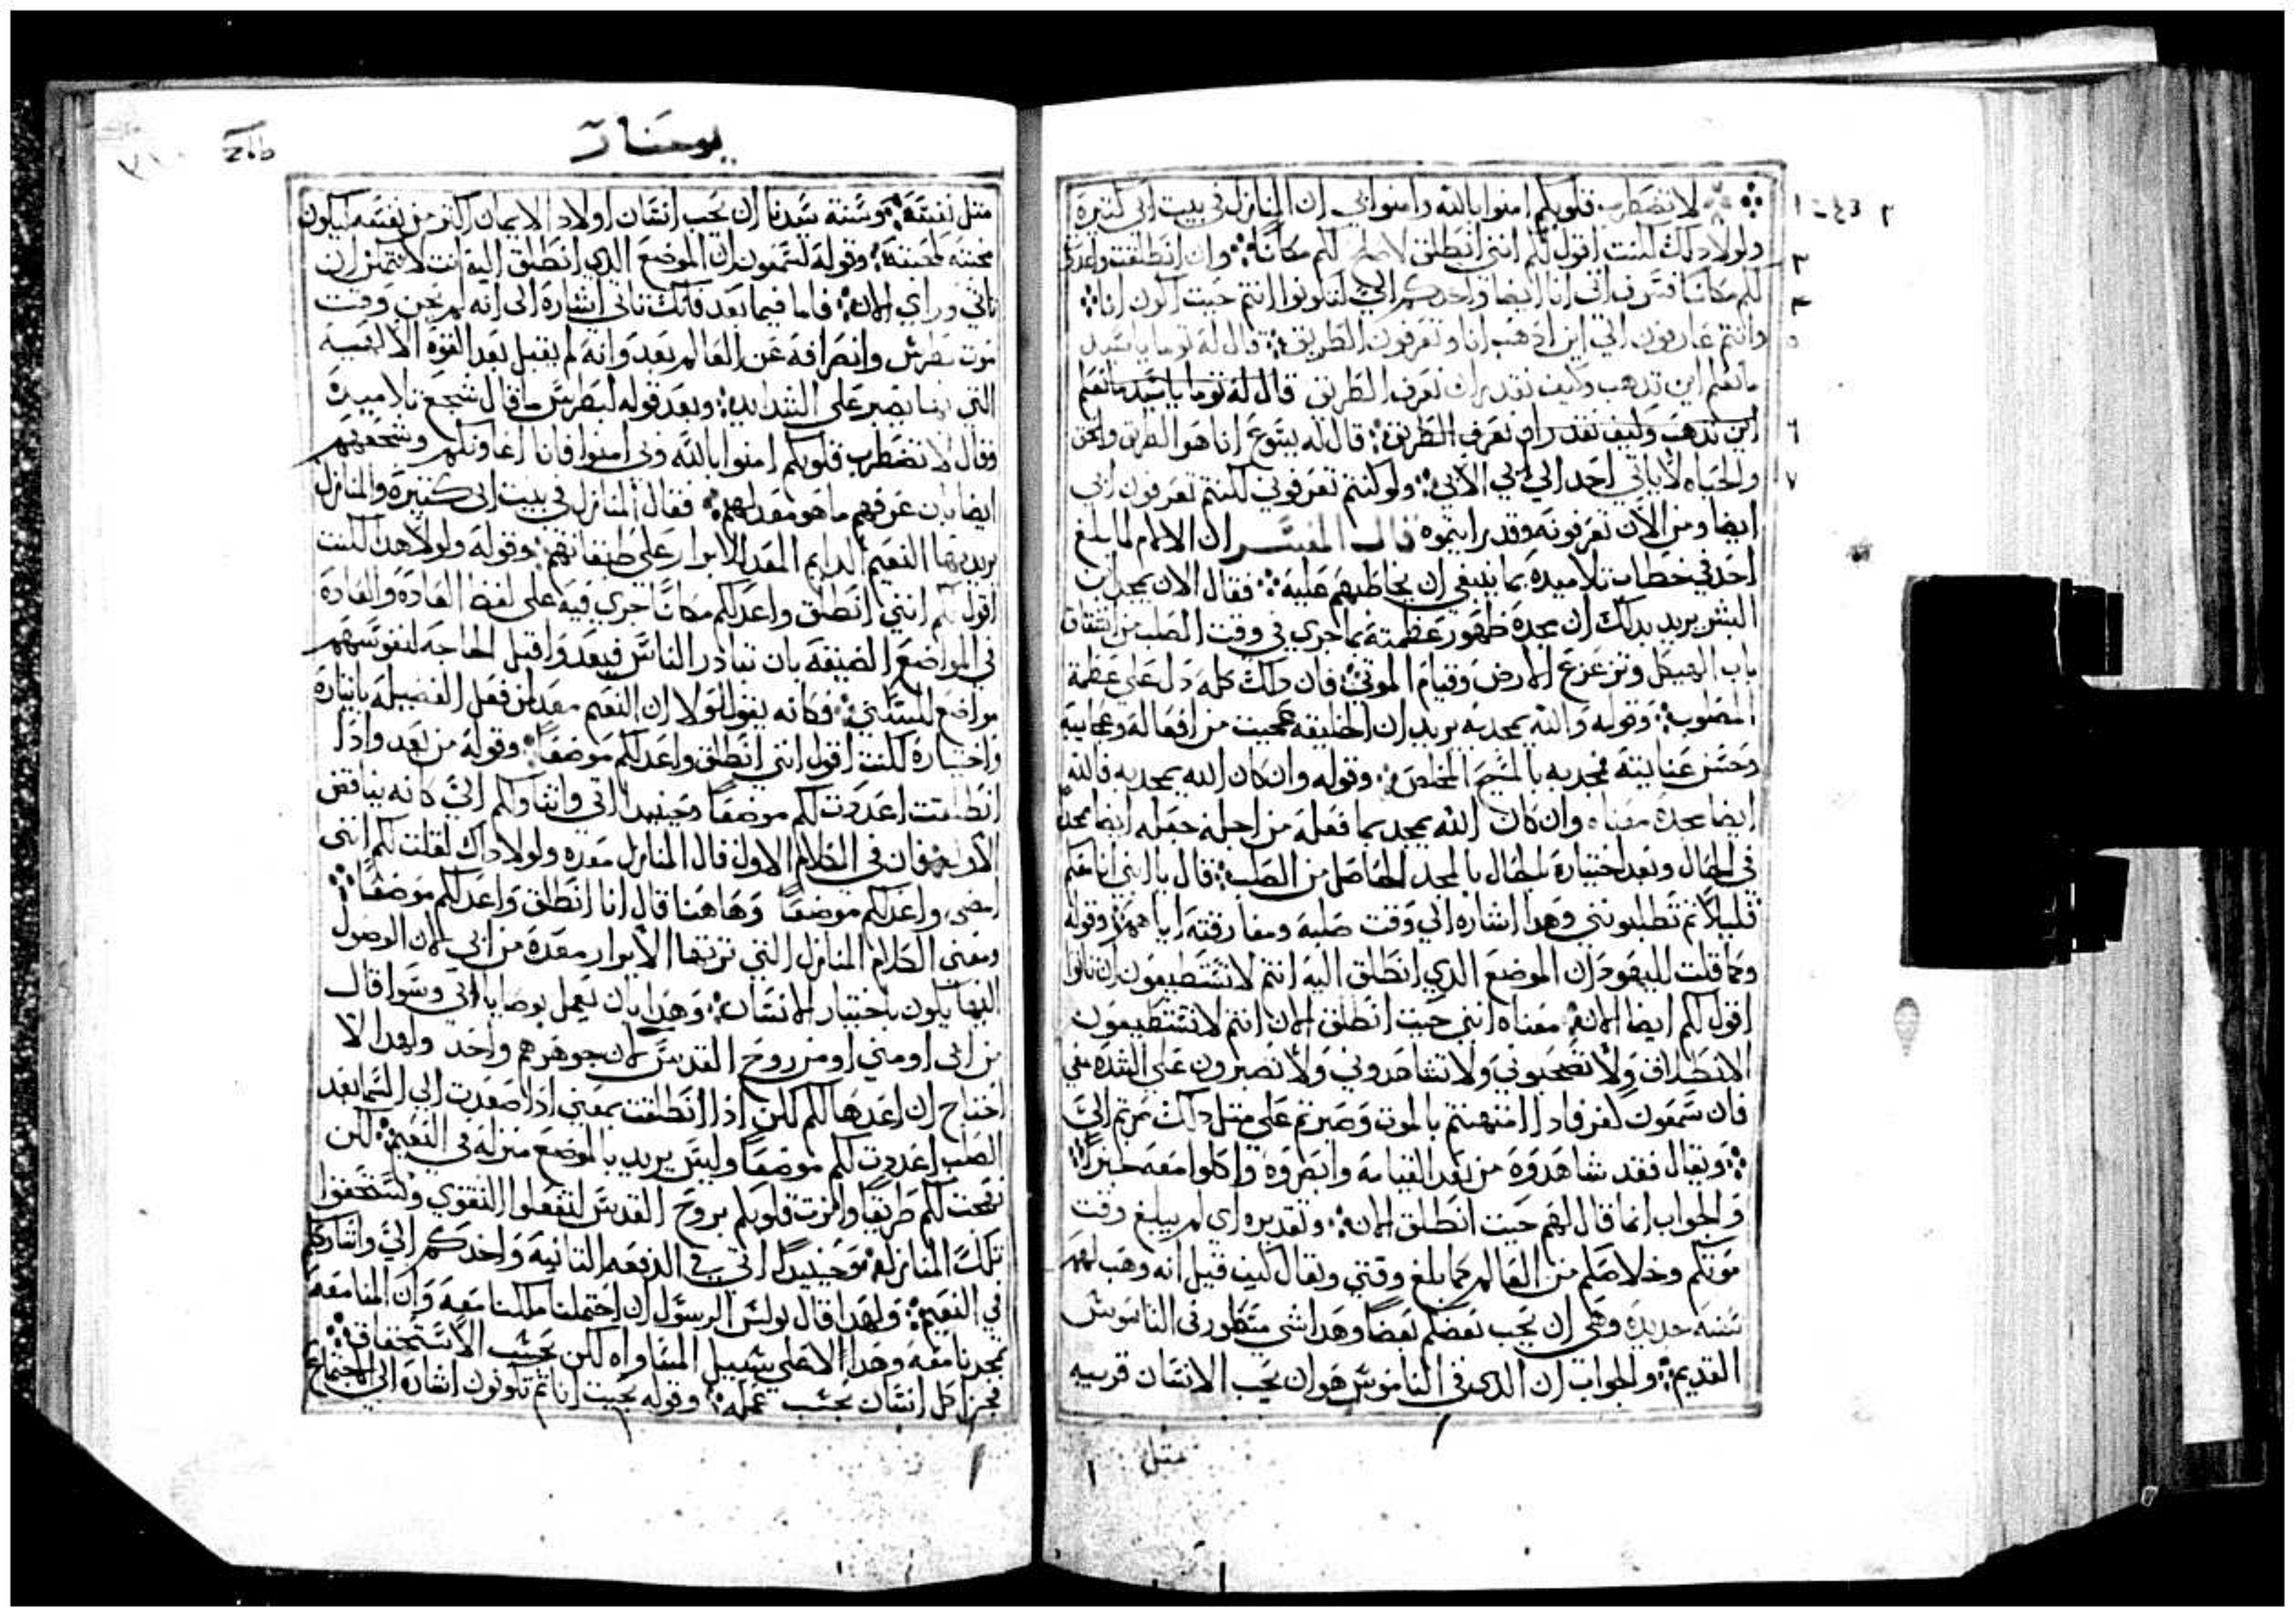 لا تضطرب قلوبكم امنوا بالله وامنوا بي ان المنازل في بيت ابي كثيرة
ولولا ذلك لكنت اقول لكم انني انطلق لاصلح لكم مكانا وان انطلقت واعددت
لكم مكانا فسوف اتي انا ايضا واخذكم الي لتكونوا انتم حيت اكون انا
وانتم عارفون الي اين ادهب انا وتعرفون الطريق قال له توما يا سيد
ما نعلم اين تدهب وكيف نقدر ان نعرف الطريق قال له توما يا سيد ما نعلم
اين تدهب وكيف نقدر ان نعرف الطريق قال له يسوع انا هو الطريق والحق
والحياه لا ياتي احد الي ابي الا بي ولو كنتم تعرفوني لكنتم تعرفون ابي
ايضا ومن الان تعرفونه وقد رايتموه قال المفسر ان الامر لما بلغ
اخد في خطاب تلاميده بما ينبغي ان يخاطبهم عليه فقال الان يمجد ابن
البشر يريد بدلك ان مجده ظهور عظمته بما جري في وقت الصلب من انشقاق
باب الهيكل وتزعزع الارض وقيام الموتي فان دلك كله دل علي عظمة
المصلوب وقوله والله يمجد به يريد ان الخليقه عجبت من افعاله وعجايبه
وحسن عنايته فمجد به بالمسيح المخلص وقوله وان كان الله يمجد به فالله
ايضا يمجده معناه وان كان الله يمجد بما فعله من اجله جعله ايضا مجدا
في الحال وبعد اختياره الحال بالمجد الحاصل من الصلب قال يا ابني انا معكم
قليلا تم تطلبونني وهدا اشاره الي وقت صلبه ومفارقته اياهم وقوله
وكما قلت لليهود ان الموضع الدي انطلق اليه انتم لا تستطيعون ان تاتوا
اقول لكم ايضا الان معناه انني حيت انطلق الان انتم لا تستطيعون
الانطلاق ولا تصحبوني ولا تشاهدوني ولا تصبرون علي الشده معي
فان سمعون كفر فادا امتهنتم بالموت وصبرتم علي متل دلك صرتم الي
ويقال فقد شاهدوه من بعد القيامه وابصروه واكلوا معه خبزا
والجواب انما قال لهم حيت انطلق الان وتقديره اي لم يبلغ وقت
موتكم وخلاصكم من العالم كما بلغ وقتي ويقال كيف قيل انه وهب لهم
سنه جديده وهي ان يحب بعضكم بعضا وهدا شي مسطور في الناموس
القديم والجواب ان الدي في الناموس هو ان يحب الانسان قريبه
متل
يوحنا
متل نفسه وسنة سيدنا ان يحب انسان اولاد الايمان اكتر من نفسه ليكون
محبته كمحبته وقوله لسمعون ان الموضع الدي انطلق اليه انت لا تتمكن ان
تاتي وراي الان فاما فيما بعد فانك تاتي اشاره الي انه لم يحن وقت
موت بطرس وانصرافه عن العالم بعد وانه لم يقبل بعد القوه الالهيه
التي بها يصبر علي الشدايد وبعد قوله لبطرس ما قال شجع تلاميده
وقال لا تضطرب قلوبكم امنوا بالله وبي امنوا فانا اعاونكم وشجعهم
ايضا بان عرفهم ما هو معد لهم فقال المنازل في بيت ابي كتيره والمنازل
يريد بها النعيم الدايم المعد للابرار علي طبقاتهم وقوله ولولا هدا لكنت
اقول لكم انني انطلق واعد لكم مكانا جري فيه علي لفظ العاده والعاده
في المواضع الضيقه بان تبادر الناس فيعدوا قبل الحاجه لنفوسهم
مواضع للسكني فكانه يقول لولا ان النعيم معد لمن فعل الفضيله بايتاره
واختياره لكنت اقول انني انطلق واعد لكم موضعا وقوله من بعد وادا
انطلقت اعددت لكم موضعا وحينيد اتي واتناولكم الي كانه يناقض
الاول فان في الكلام الاول قال المنازل معده ولولا داك لقلت لكم انني
امضي واعد لكم موضعا وهاهنا قال انا انطلق واعد لكم موضعا
ومعني الكلام المنازل التي ترتها الابرار معده من ابي لان الوصول
اليها يكون باختيار الانسان وهدا بان يعمل بوصايا ابي وسوا قال
من ابي او مني او من روح القدس لان جوهرهم واحد ولهدا لا
احتاج ان اعدها لكم لكن ادا انطلقت بمعني ادا صعدت الي السما بعد
الصلب اعددت لكم موضعا وليس يريد بالموضع منزله في النعيم لكن
نهجت لكم طريقا وانرت قلوبكم بروح القدس لتفعلوا التقوي وتستحقوا
تلك المنازل وحينيد اتي في الدفعه التانيه واخدكم الي واشارككم
في النعيم ولهدا قال بولس الرسول ان احتملنا ملكنا معه وان المنا معه
تمجدنا معه وهدا لا علي سبيل المساواه لكن بحسب الاستحقاق
فجزا كل انسان بحسب عمله وقوله بحيت انا تم تكونون اشاره الي اجتماع